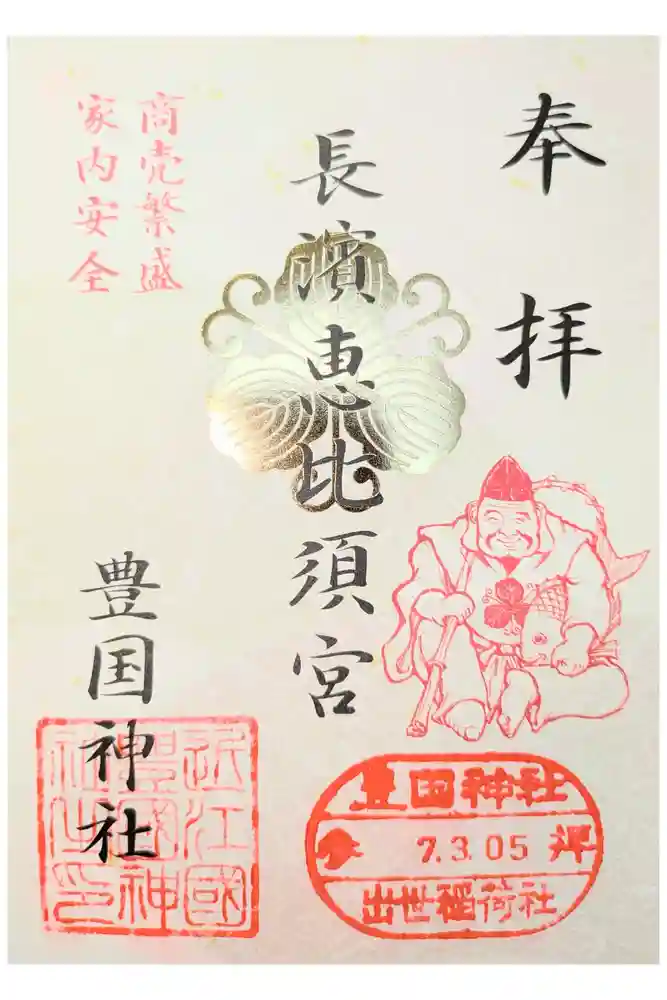 奉拝
長濱恵比須宮
商売繁盛
家内安全
豊国神社
近江國
豊國神
社之印
豊国神社
奉 7.3.05 拝
出世稲荷社